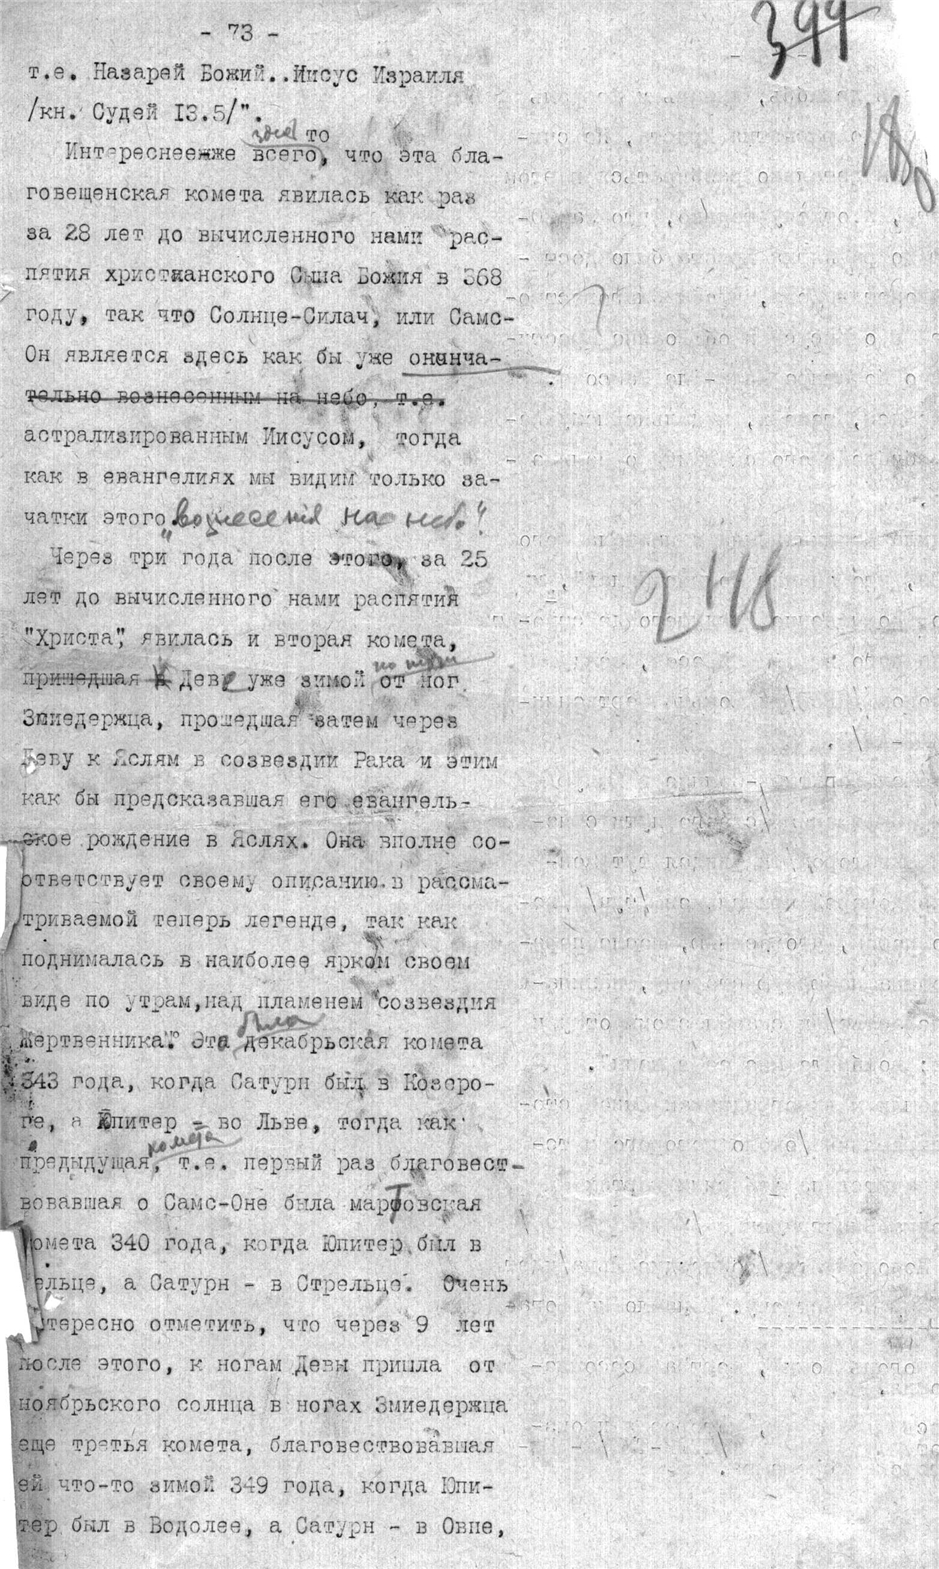 - 73 -
399
180
т.е. Назарей Божий..Иисус Израиля
/кн. Судей 13.5/".
здесь то
Интереснеежже всего, что эта бла-
говещенская комета явилась как раз
за 28 лет до вычисленного нами рас-
пятия христианского Сына Божия в 368
году, так что Солнце-Силач, или Самс-
Он является здесь как бы уже оконча-
тельно вознесенным на небо, т.е.
астрализированным Иисусом, тогда
как в евангелиях мы видим только за-
чатки этого „вознесения на небо"
Через три года после этого, за 25
248
лет до вычисленного нами распятия
"Христа", явилась и вторая комета,
по пути
пришедшая к Деве уже зимой от ног
Змиедержца, прошедшая затем через
Деву к Яслям в созвездии Рака и этим
как бы предсказавшая его евангель-
ское рождение в Яслях. Она вполне со-
ответствует своему описанию в рассма-
триваемой теперь легенде, так как
поднималась в наиболее ярком своем
виде по утрам, над пламенем "созвездия
была
Жертвенника". Эта декабрьская комета
343 года, когда Сатурн был в Козеро-
ге, а Юпитер - во Льве, тогда как
комета
предыдущая, т.е. первый раз благовест-
вовавшая о Самс-Оне была мартовская
комета 340 года, когда Юпитер был в
ельце, а Сатурн - в Стрельце. Очень
тересно отметить, что через 9 лет
после этого, к ногам Девы пришла от
ноябрьского солнца в ногах Змиедержца
еще третья комета, благовествовавшая
ей что-то зимой 349 года, когда Юпи-
тер был в Водолее, а Сатурн - в Овне,